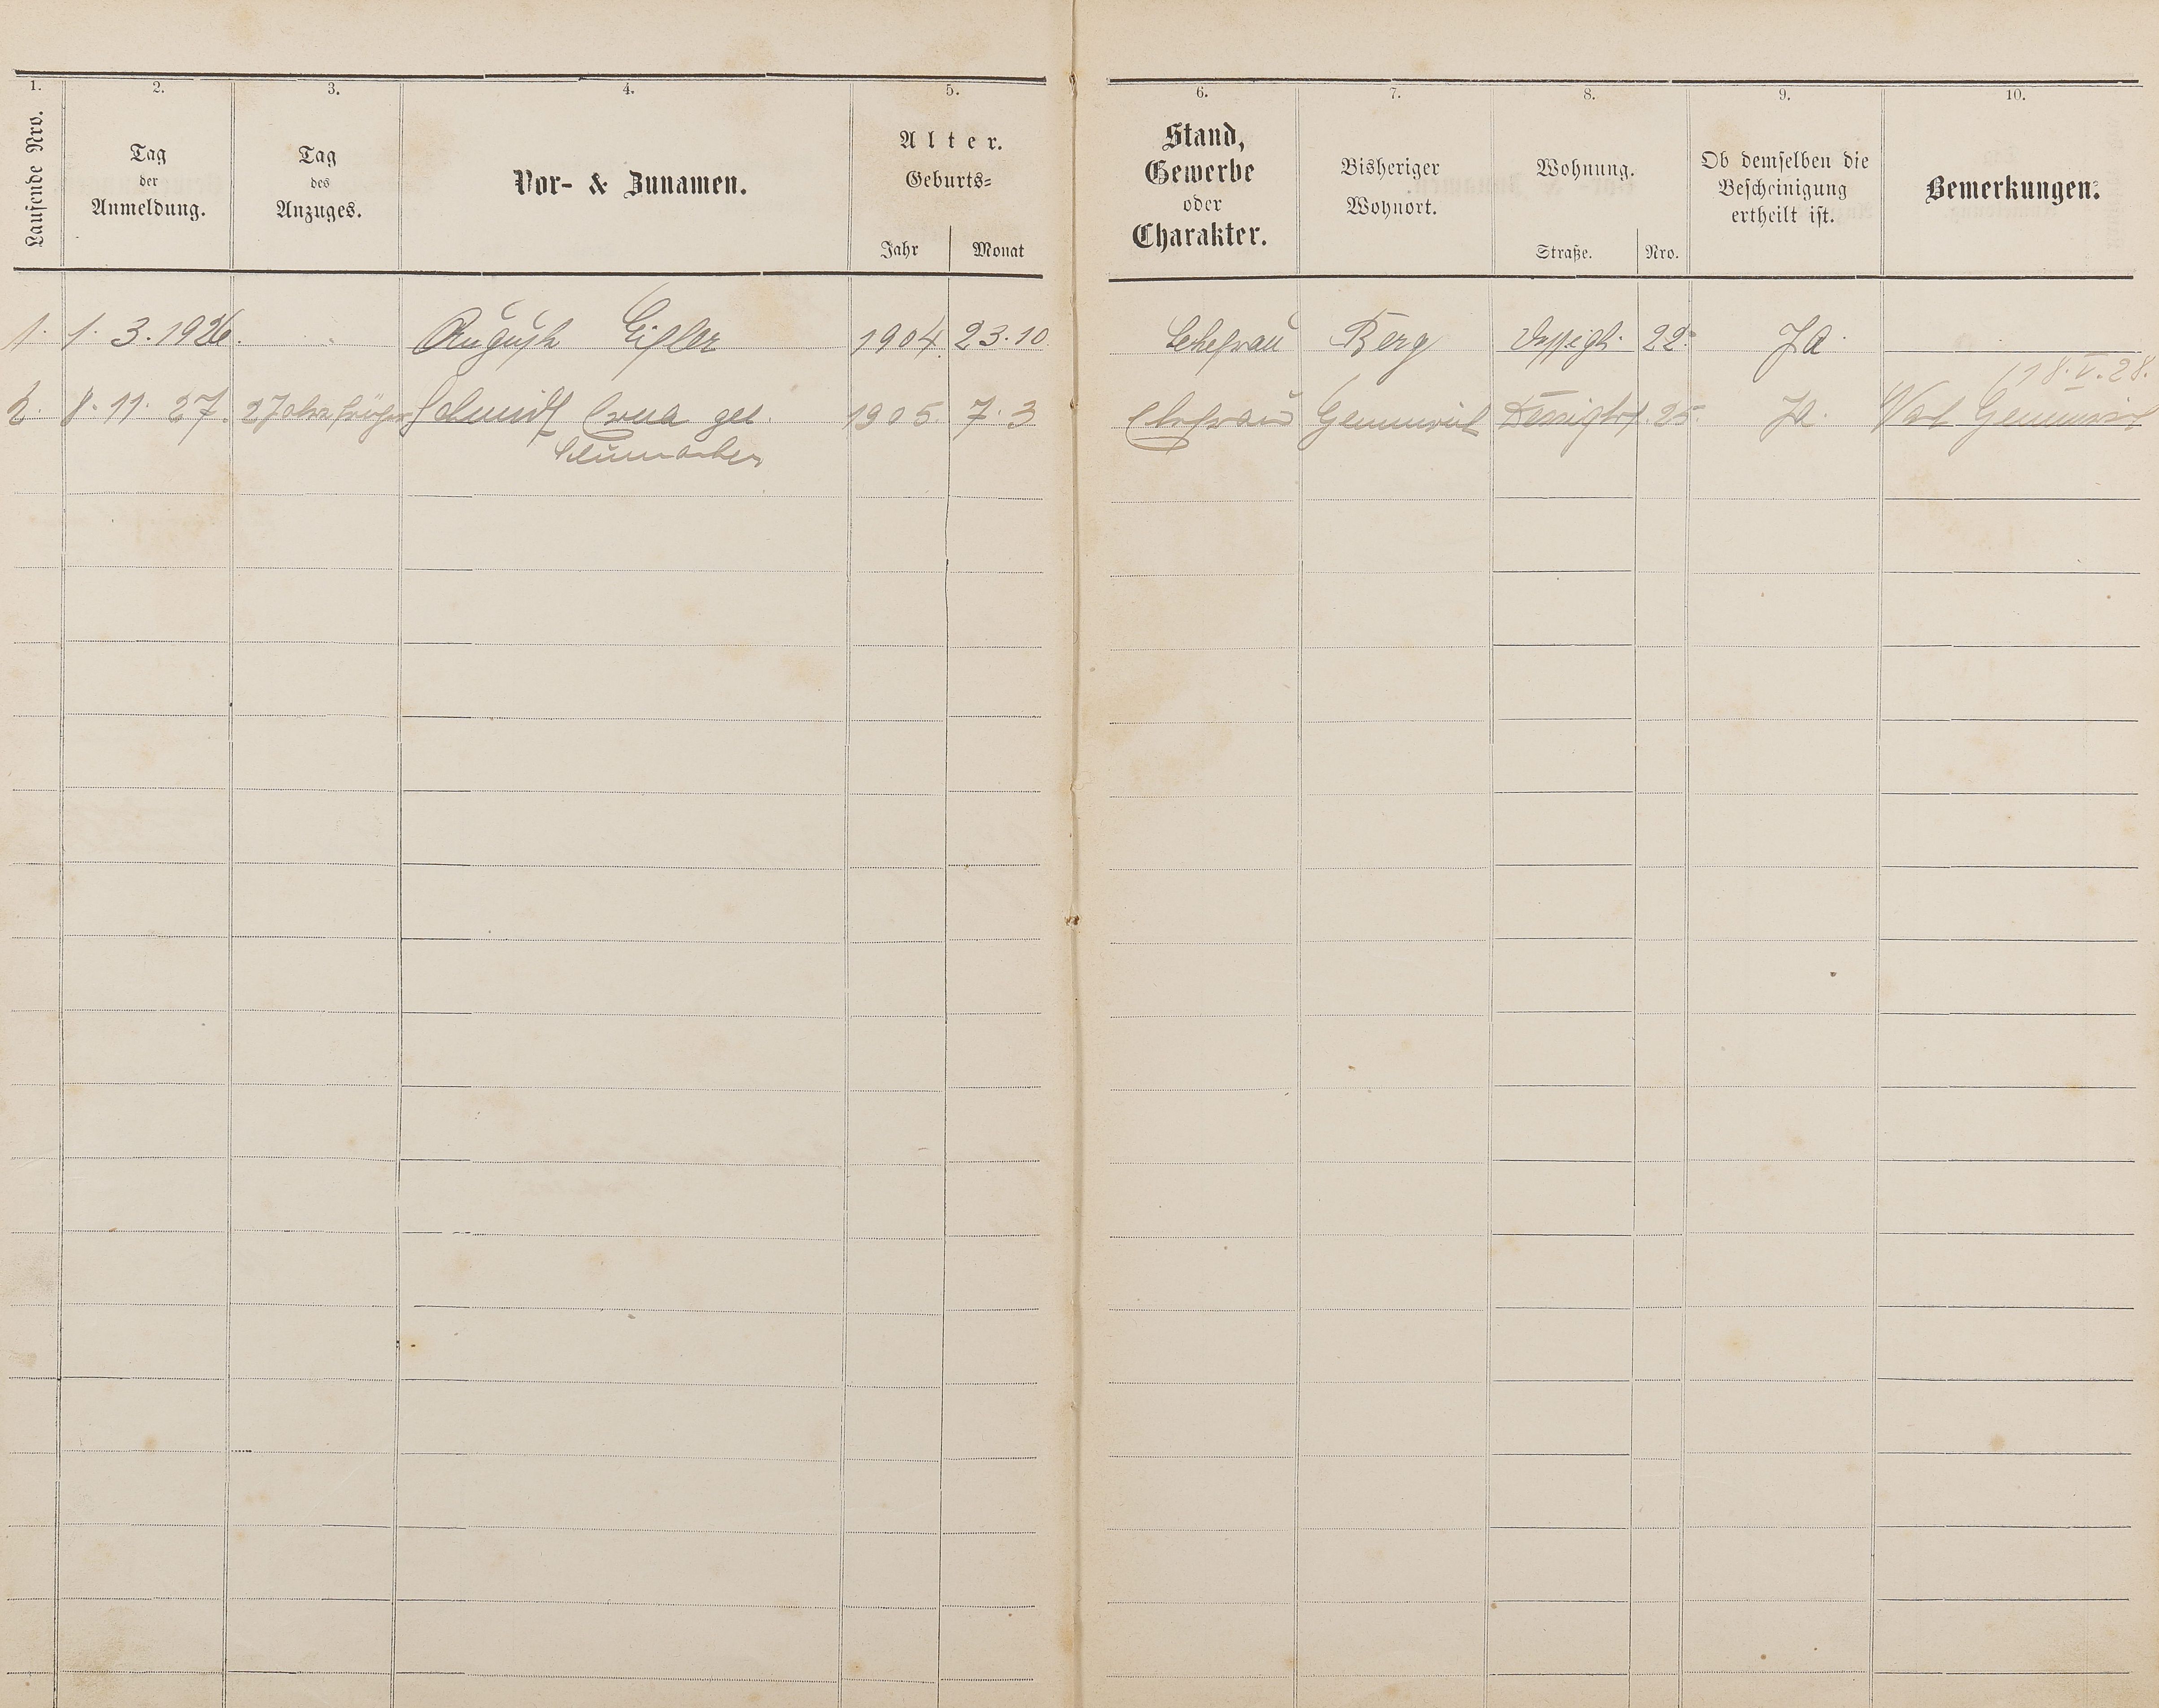 1. 2. 3. 4. 5. 6. 7. 8. 9. 10.
Laufende Nro.
Tag der Anmeldung.
Tag des Anzuges.
Vor- & Zunamen.
Alter.
Geburts-
Jahr Monat
Stand, Gewerbe oder Charakter.
Bisheriger Wohnort.
Wohnung.
Straße. Nro.
Ob demselben die Bescheinigung ertheilt ist.
Bemerkungen.
1. 1. 3. 1926. August 1904 23.10 Ehefrau Berg 22. Ja.
18. V. 28.
2. 8. 11. 27. 2 Jahre früher Schmidt Erna geb. 1905. 7. 3 Ehefrau 25. Ja.